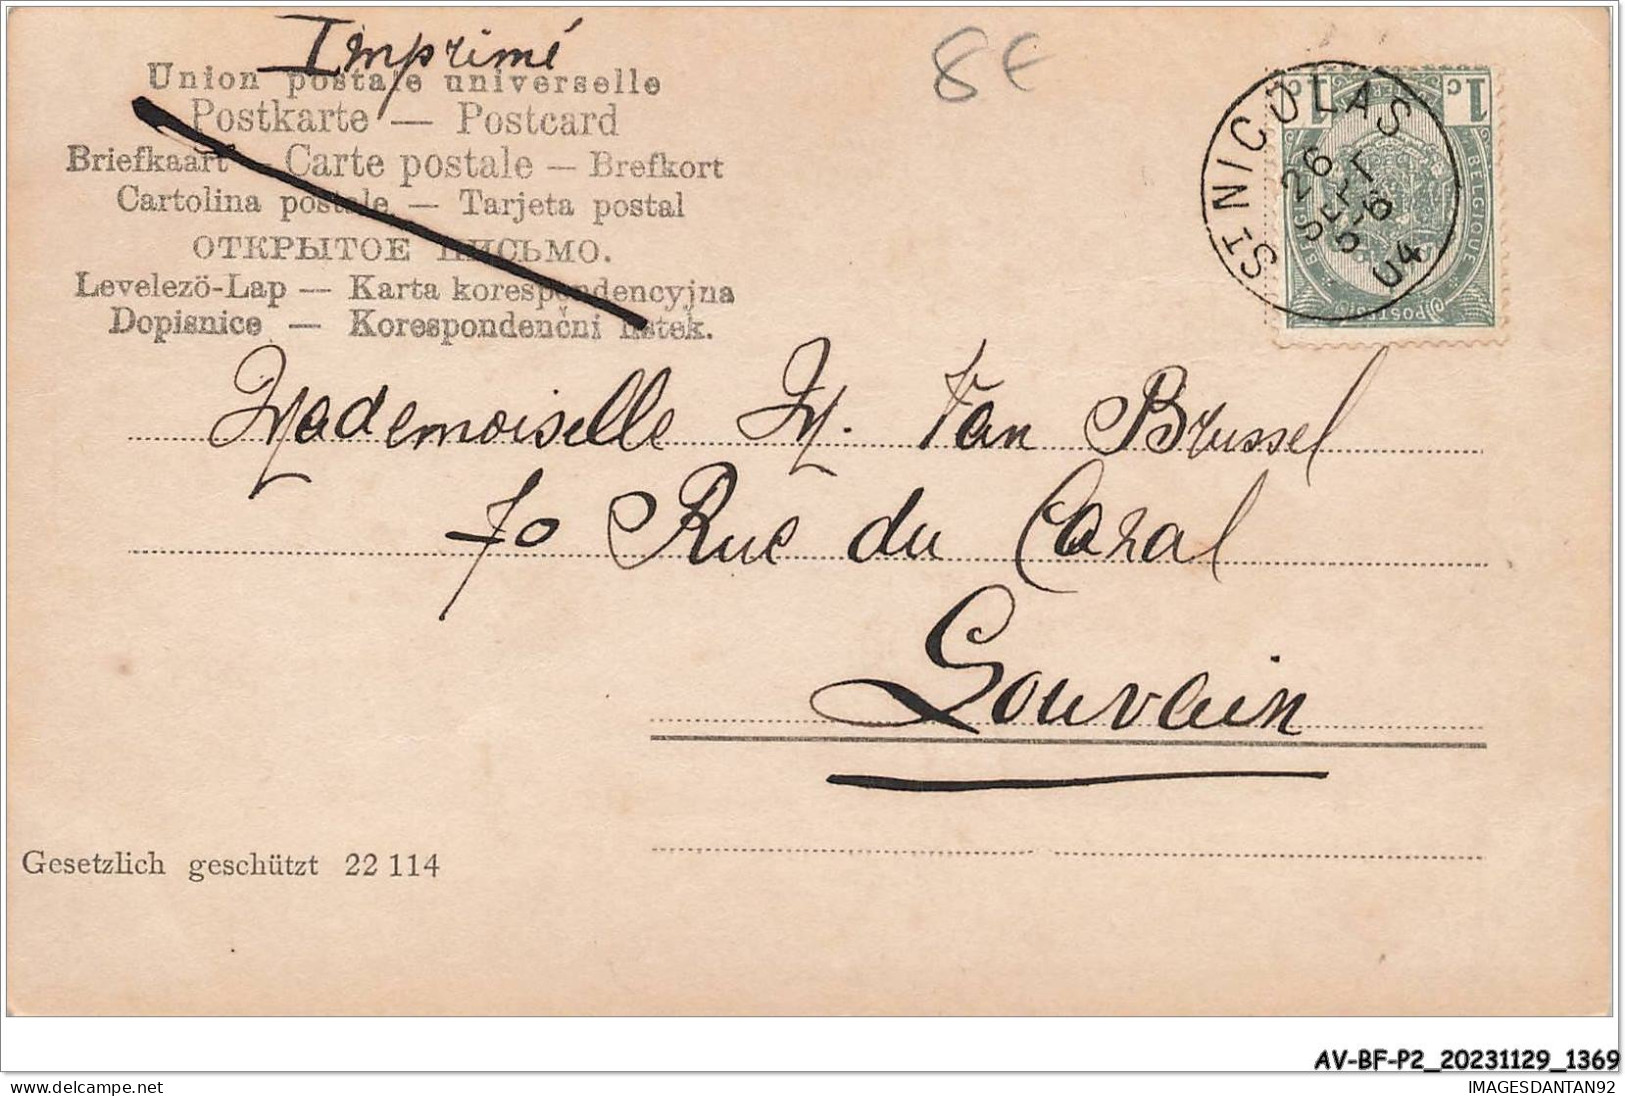 Imprimé
8€
Union postale universelle
Postkarte — Postcard
Briefkaart — Carte postale — Brefkort
Cartolina postale — Tarjeta postal
ОТКРЫТОЕ ПИСЬМО.
Levelezö-Lap — Karta korespondencyjna
Dopisnice — Korespondenční lístek.
1c 1c
BELGIQUE
POSTERIJEN
ST NICOLAS
26
SEPT
5-6
04
Mademoiselle M. Van Brussel
70 Rue du Canal
Louvain
Gesetzlich geschützt 22 114
AV-BF-P2_20231129_1369
www.delcampe.net
IMAGESDANTAN92